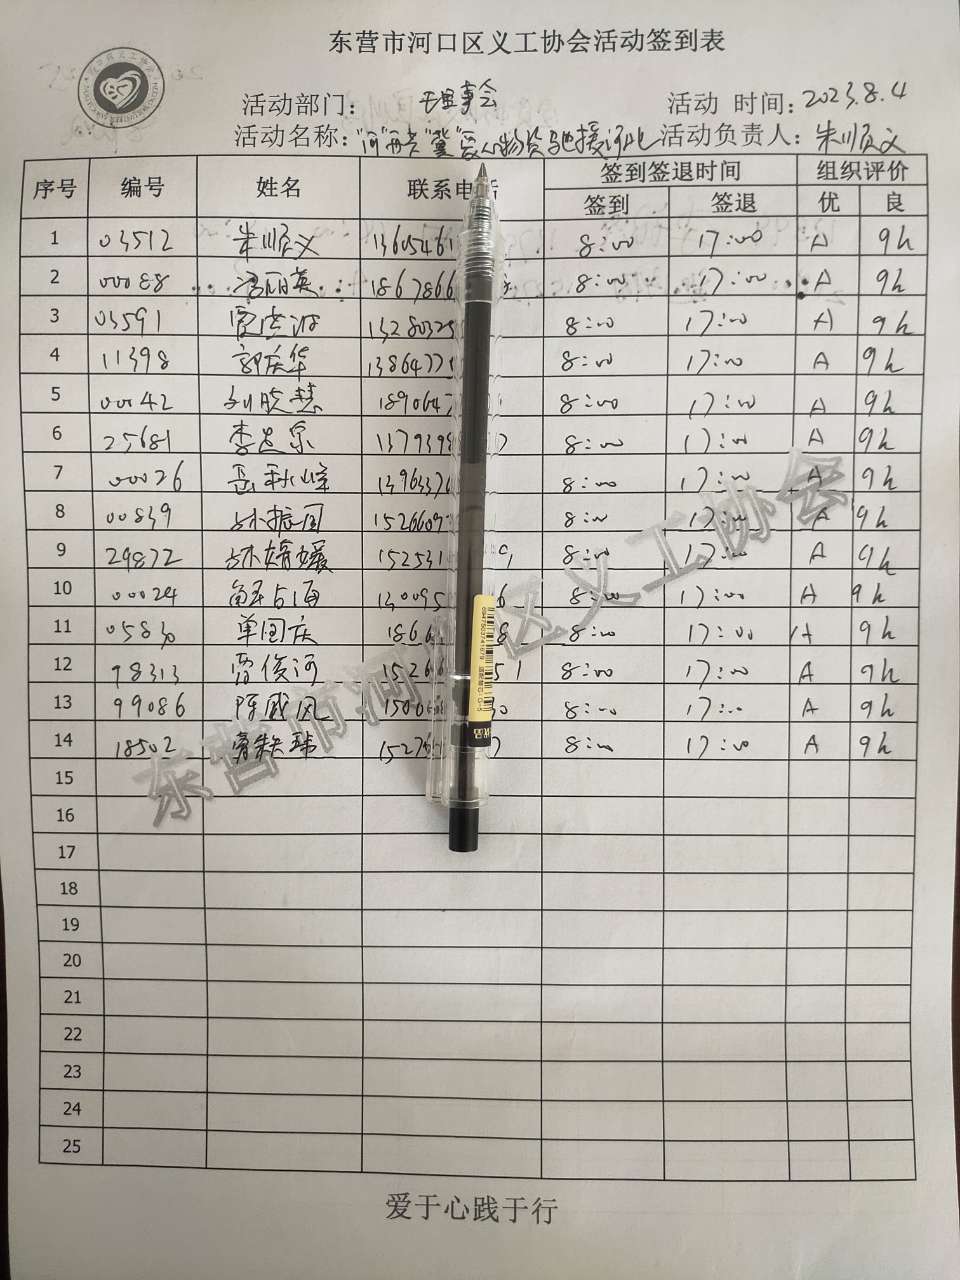 东营市河口区义工协会活动签到表
活动部门： 理事会 活动 时间：2023.8.4
活动名称："河"再共"冀"爱心物资驰援河北 活动负责人：朱顺义
序号 编号 姓名 联系电话 签到签退时间 组织评价
签到 签退 优 良
1 03512 朱顺义 1360546 8:00 17:00 A 9h
2 00088 冯丽英 1867866 8:00 17:00 A 9h
3 03591 8:00 17:00 A 9h
4 11398 郭庆华 1386477 8:00 17:00 A 9h
5 00042 刘晓慧 189064 8:00 17:00 A 9h
6 25681 李 1379398 8:00 17:00 A 9h
7 00026 岳秋峰 1396337 8:00 17:00 A 9h
8 00839 孙振国 1526609 8:00 17:00 A 9h
9 29872 孙婧媛 152531 8:00 17:00 A 9h
10 00024 130095 6 8:00 17:00 A 9h
11 05830 单国庆 1866 8 8:00 17:00 A 9h
12 98313 贾俊河 15266 51 8:00 17:00 A 9h
13 99086 陈威风 1506 30 8:00 17:00 A 9h
14 18502 15276 8:00 17:00 A 9h
15
16
17
18
19
20
21
22
23
24
25
东营市河口区义工协会
爱于心践于行